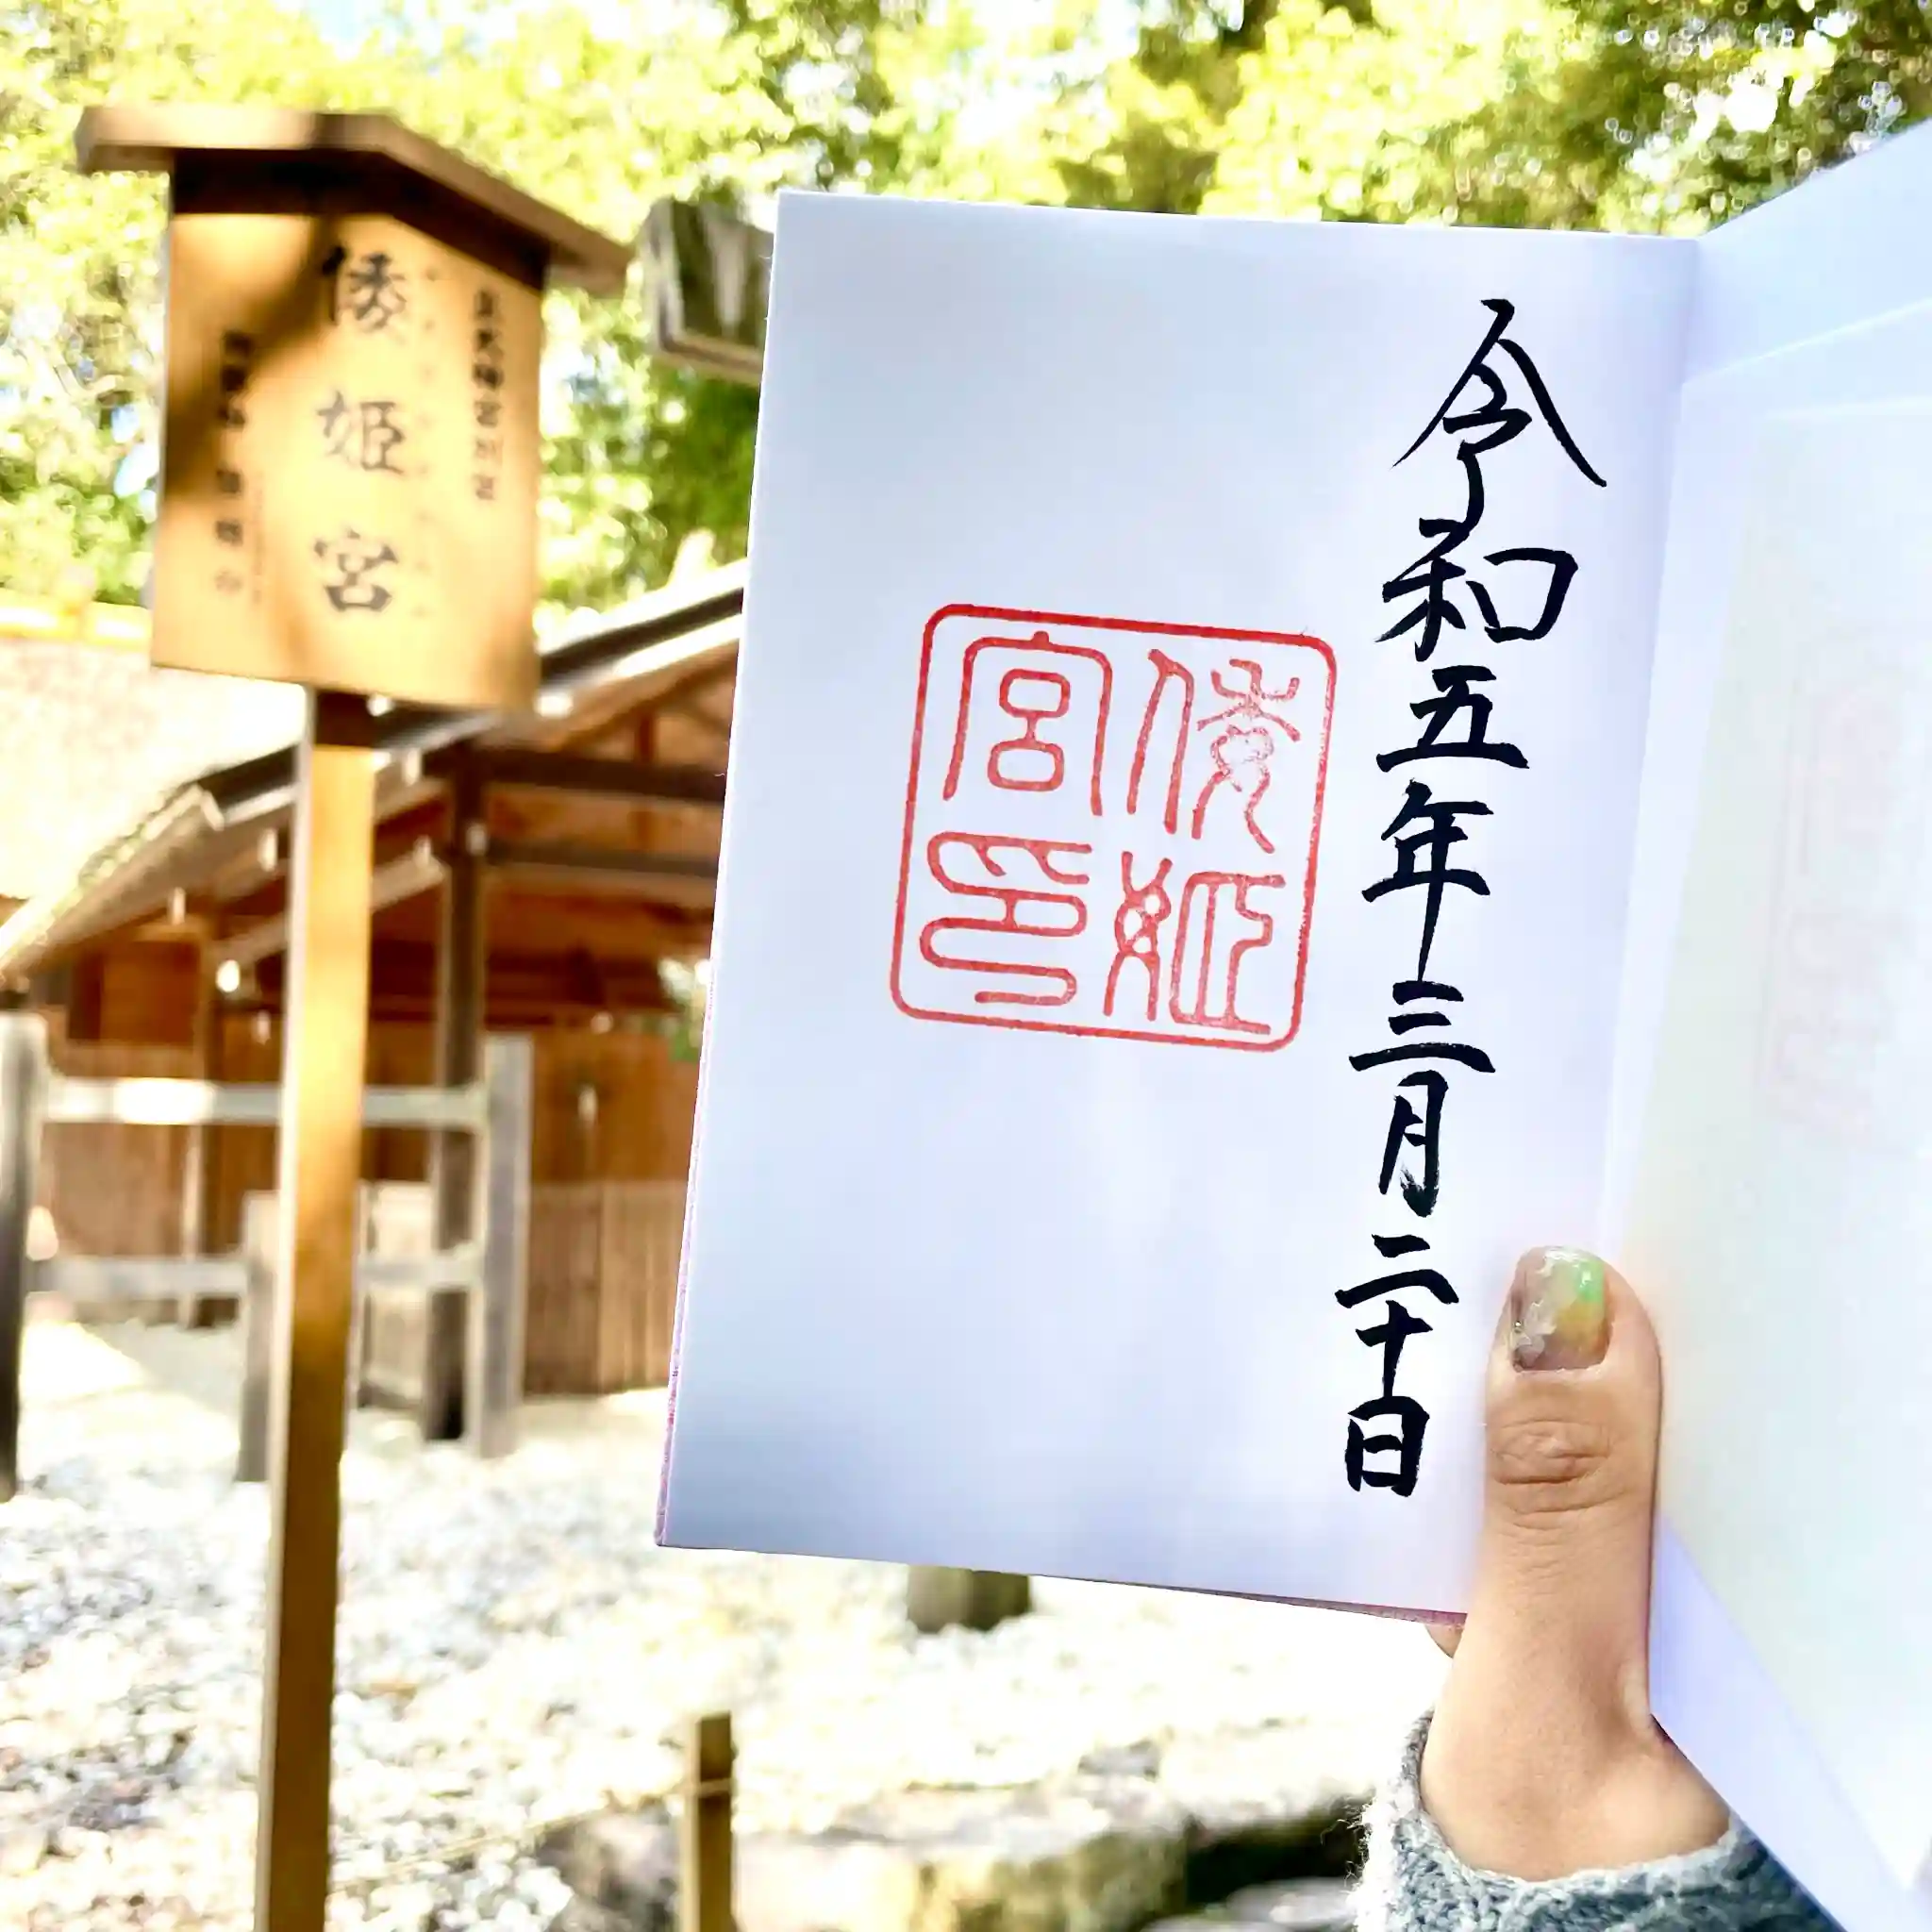 皇大神宮別宮
倭姫宮
令和五年三月二十日
倭姫
宮印